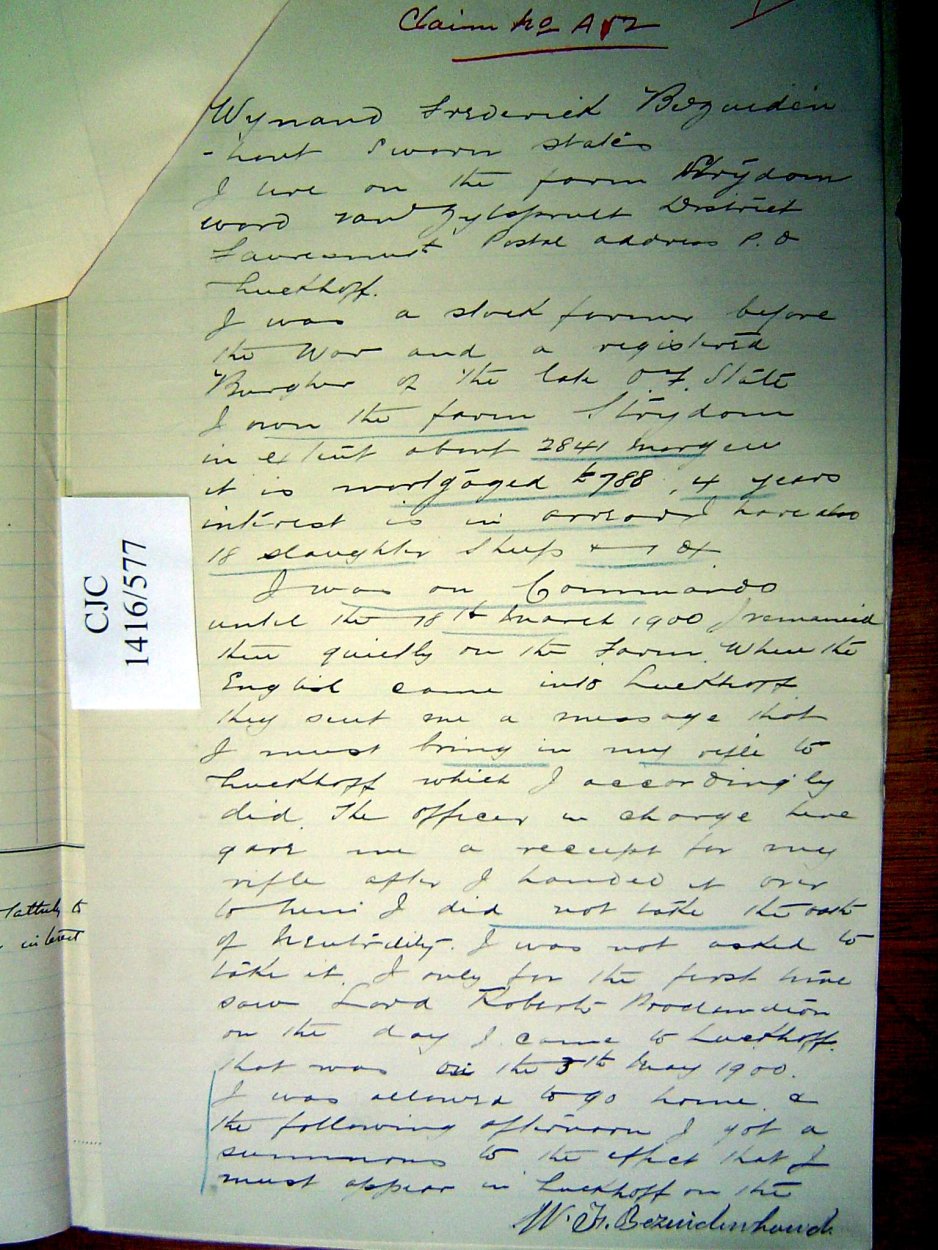 Claim No A
Wynand Frederick Bezuiden
-hout Sworn states
I live on the farm Strydom
ward van Zylspruit District
Fauresmith Postal address P.O
Luckhoff.
I was a stock farmer before
the War and a registered
Burgher of the late O.F. State
I own the farm Strydom
in extent about 2841 morgen
it is mortgaged £788, 4 years
interest is in arrear I have also
18 slaughter sheep
I was on Commando
until the 18th March 1900 I remained
then quietly on the Farm. When the
English came into Luckhoff
they sent me a message that
I must bring in my rifle to
Luckhoff which I accordingly
did. The officer in charge here
gave me a receipt for my
rifle after I handed it over
to him I did not take the oath
of Neutrality. I was not asked to
take it. I only for the first time
saw Lord Roberts Proclamation
on the day I came to Luckhoff.
that was on the 3th May 1900.
I was allowed to go home &
the following afternoon I got a
summons to the effect that I
must appear in Luckhoff on the
W. F. Bezuidenhoudt
CJC
1416/577
to
interest